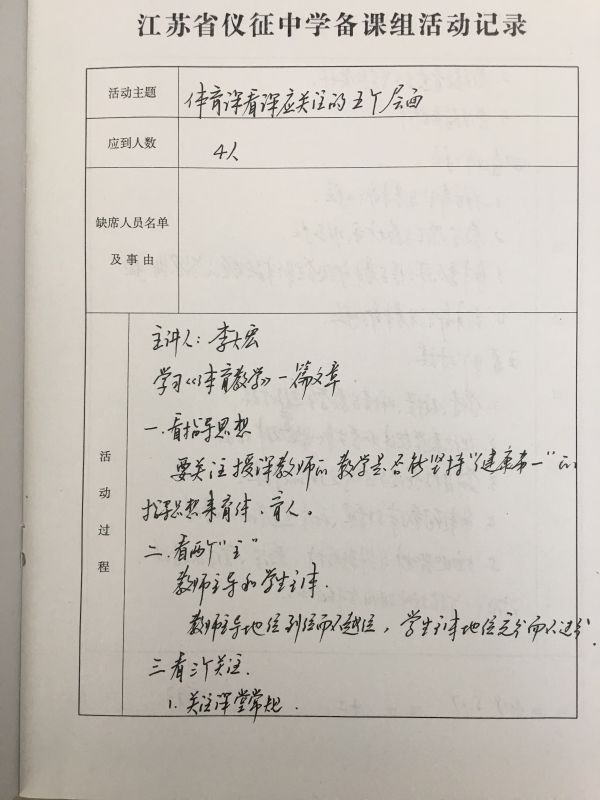 江苏省仪征中学备课组活动记录
活动主题 体育课看课应关注的五个层面
应到人数 4人
缺席人员名单
及事由
活动过程
主讲人：李大宏
学习《体育教学》一篇文章
一.看指导思想
要关注授课教师的教学是否能坚持“健康第一”的
指导思想来育体、育人。
二、看两个“主”
教师主导和学生主体.
教师主导地位到位而不越位，学生主体地位充分而不过分.
三看三个关注.
1.关注课堂常规.